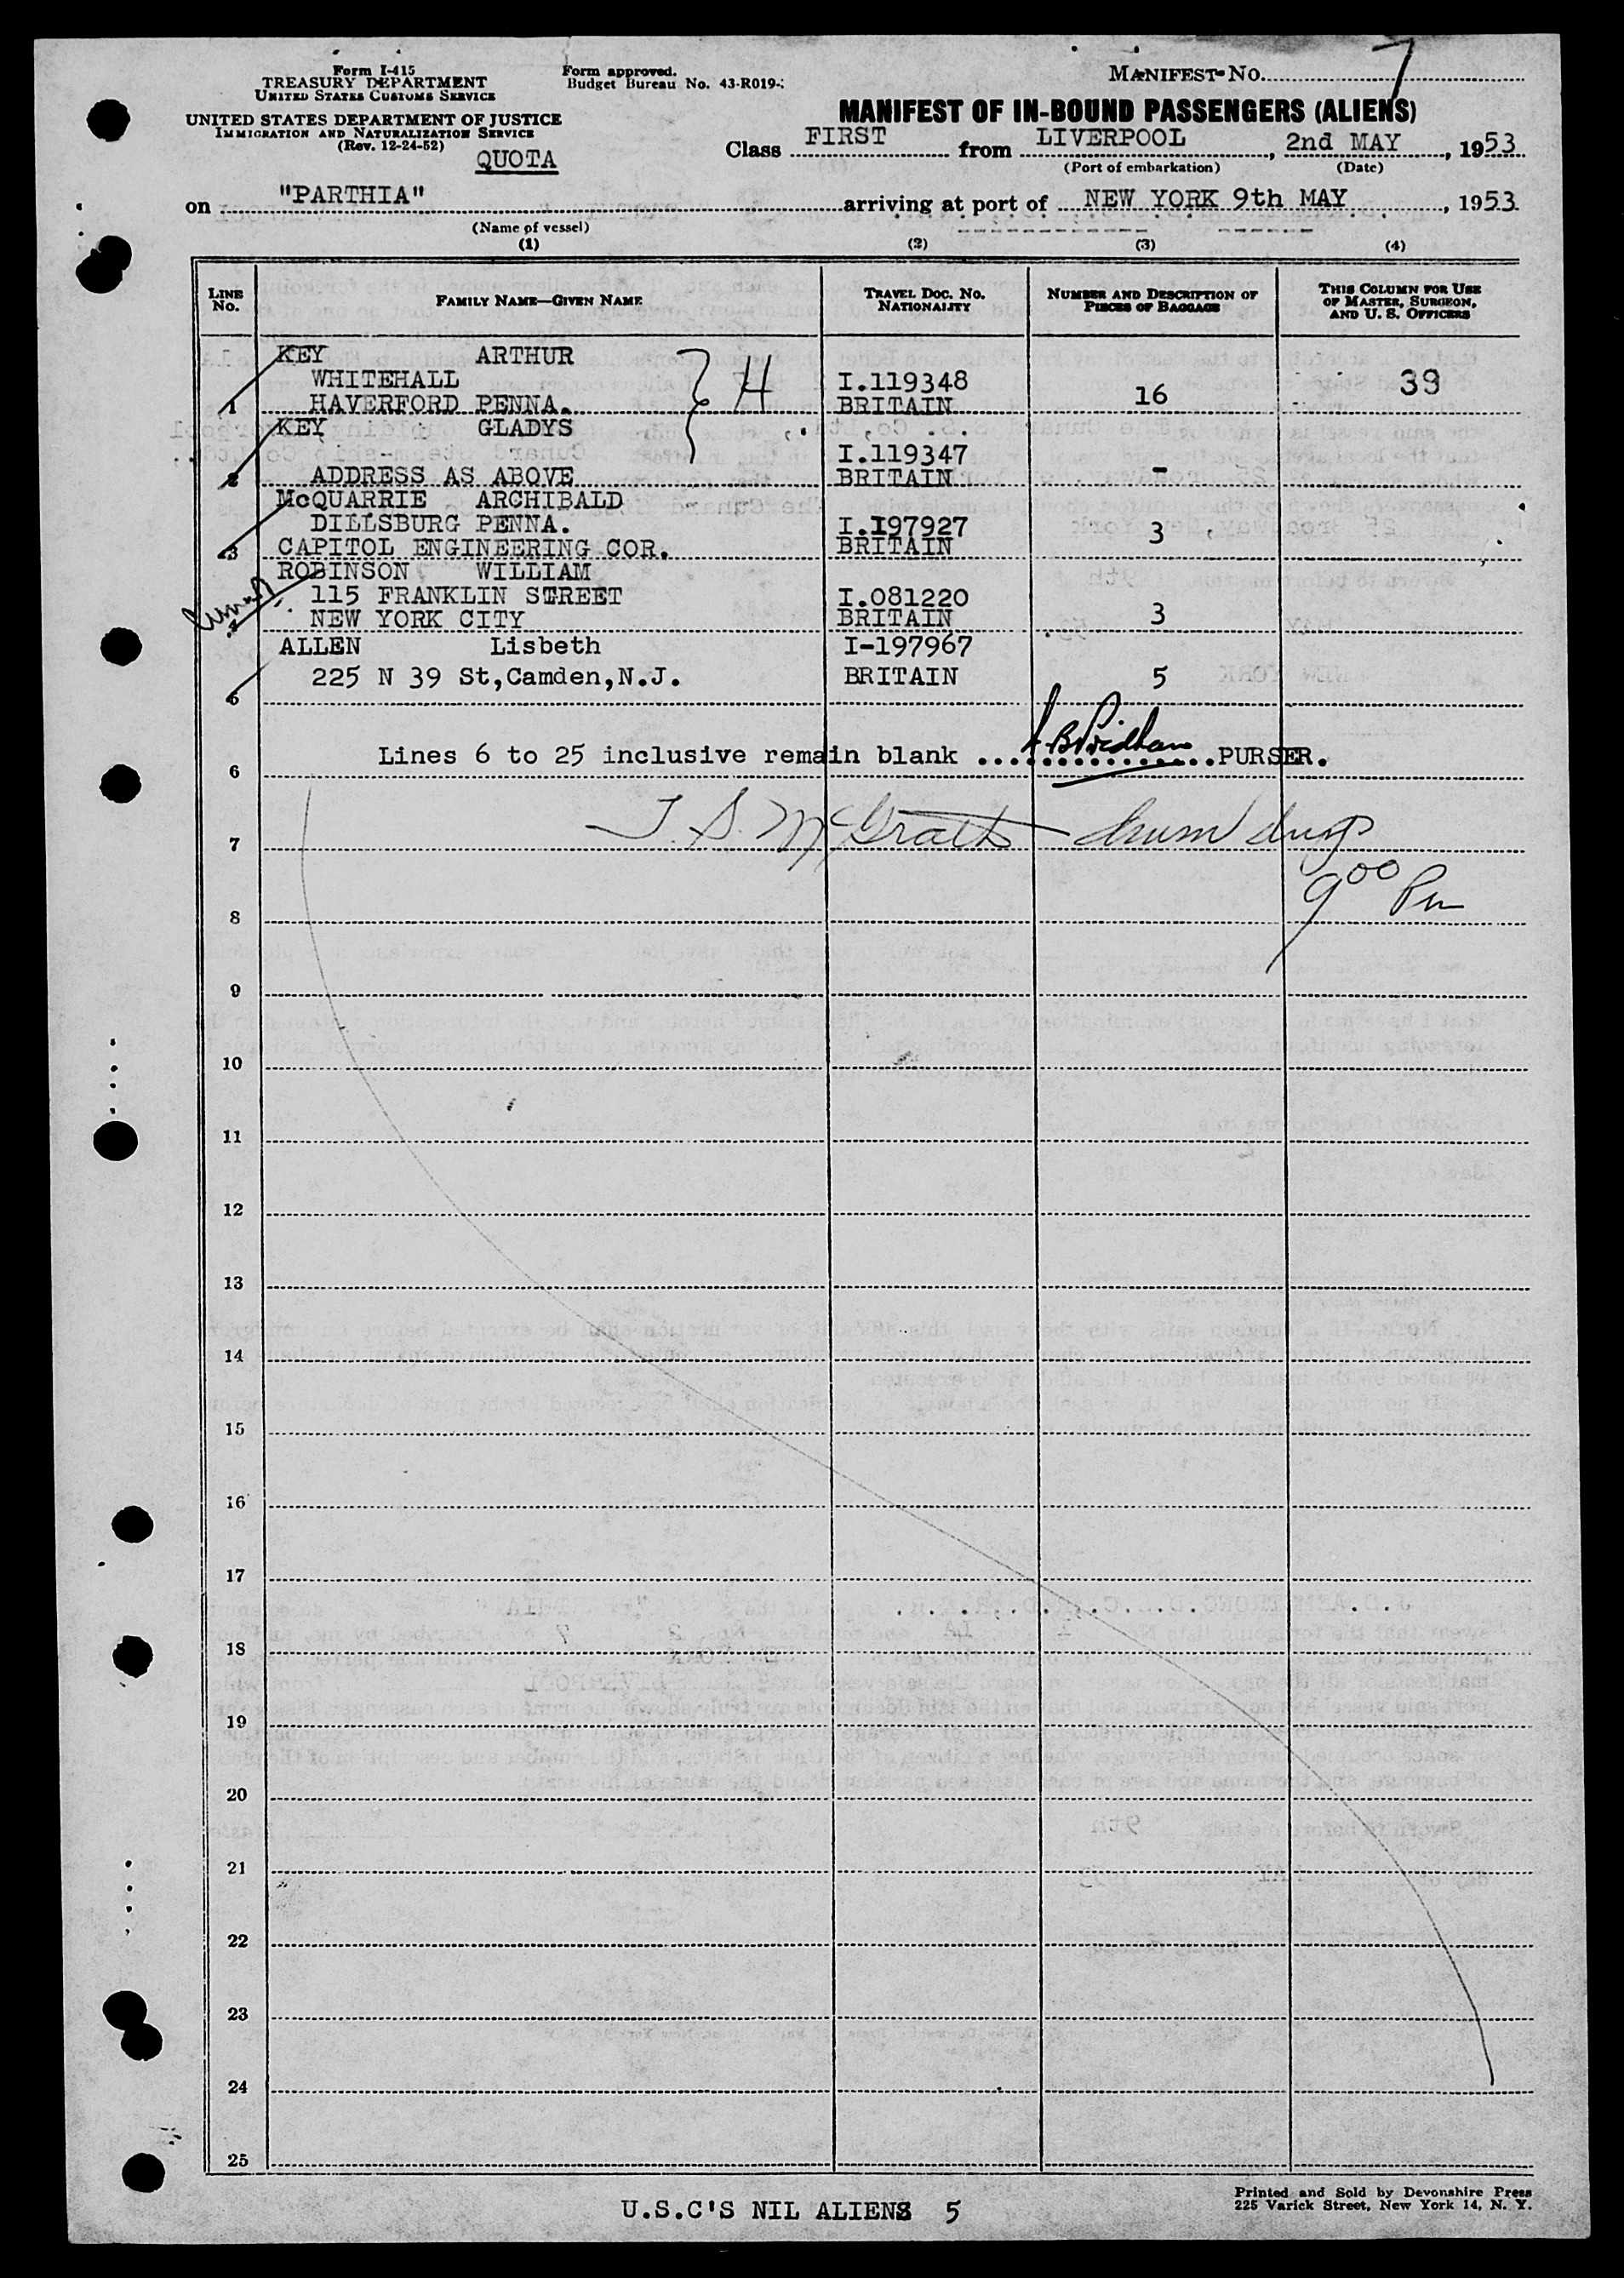 Form I-415
TREASURY DEPARTMENT
UNITED STATES CUSTOMS SERVICE
UNITED STATES DEPARTMENT OF JUSTICE
IMMIGRATION AND NATURALIZATION SERVICE
(Rev. 12-24-52)
QUOTA
Form approved.
Budget Bureau No. 43-R019-
MANIFEST NO. 7
MANIFEST OF IN-BOUND PASSENGERS (ALIENS)
Class FIRST from LIVERPOOL, 2nd MAY, 1953
(Port of embarkation) (Date)
on "PARTHIA" arriving at port of NEW YORK 9th MAY, 1953
(Name of vessel)
(1) (2) (3) (4)
LINE NO. FAMILY NAME—GIVEN NAME TRAVEL DOC. NO. NATIONALITY NUMBER AND DESCRIPTION OF PIECES OF BAGGAGE THIS COLUMN FOR USE OF MASTER, SURGEON, AND U. S. OFFICERS
KEY ARTHUR
WHITEHALL I.119348 39
1 HAVERFORD PENNA. H BRITAIN 16
KEY GLADYS
I.119347
2 ADDRESS AS ABOVE BRITAIN -
McQUARRIE ARCHIBALD
DILLSBURG PENNA. I.197927
3 CAPITOL ENGINEERING COR. BRITAIN 3
ROBINSON WILLIAM
115 FRANKLIN STREET I.081220
4 NEW YORK CITY BRITAIN 3
ALLEN Lisbeth I-197967
225 N 39 St,Camden,N.J. BRITAIN 5
5
6 Lines 6 to 25 inclusive remain blank ................PURSER.
7 T. S. McGrath
9 00 Pm
8
9
10
11
12
13
14
15
16
17
18
19
20
21
22
23
24
25
U.S.C'S NIL ALIENS 5
Printed and Sold by Devonshire Press
225 Varick Street, New York 14, N. Y.